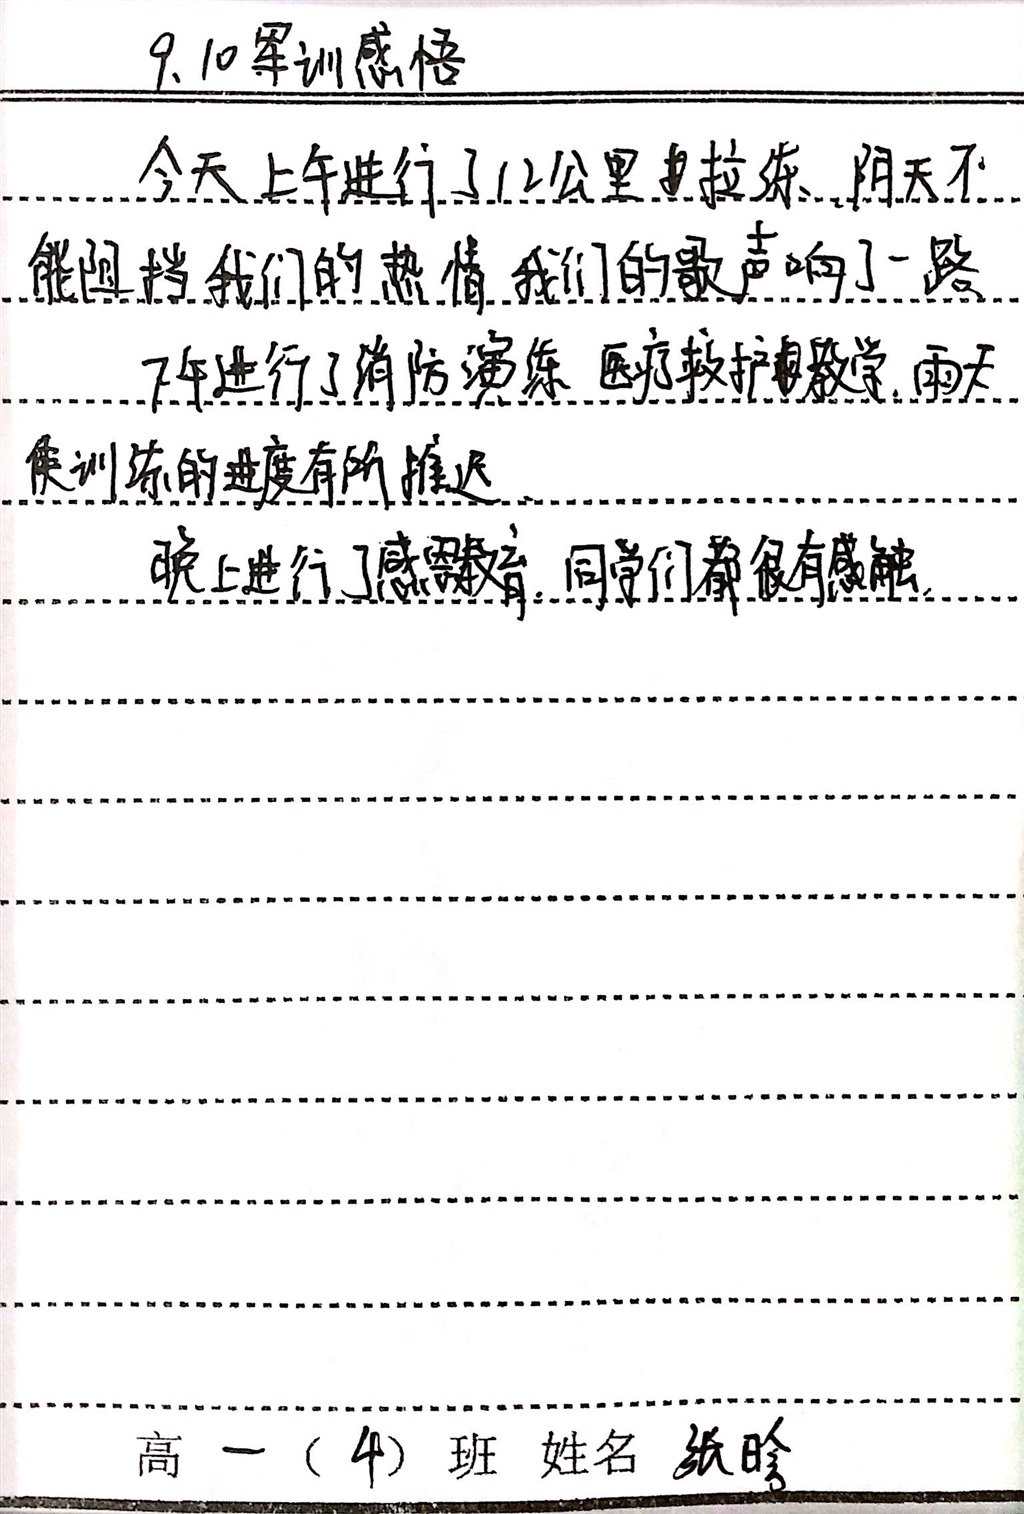 9.10军训感悟
今天上午进行了12公里拉练、阴天不
能阻挡我们的热情 我们的歌声响了一路
下午进行了消防演练 医疗救护教学.雨天
使训练的进度有所推迟.
晚上进行了感恩教育.同学们都很有感触.
高一(4)班 姓名 张昣